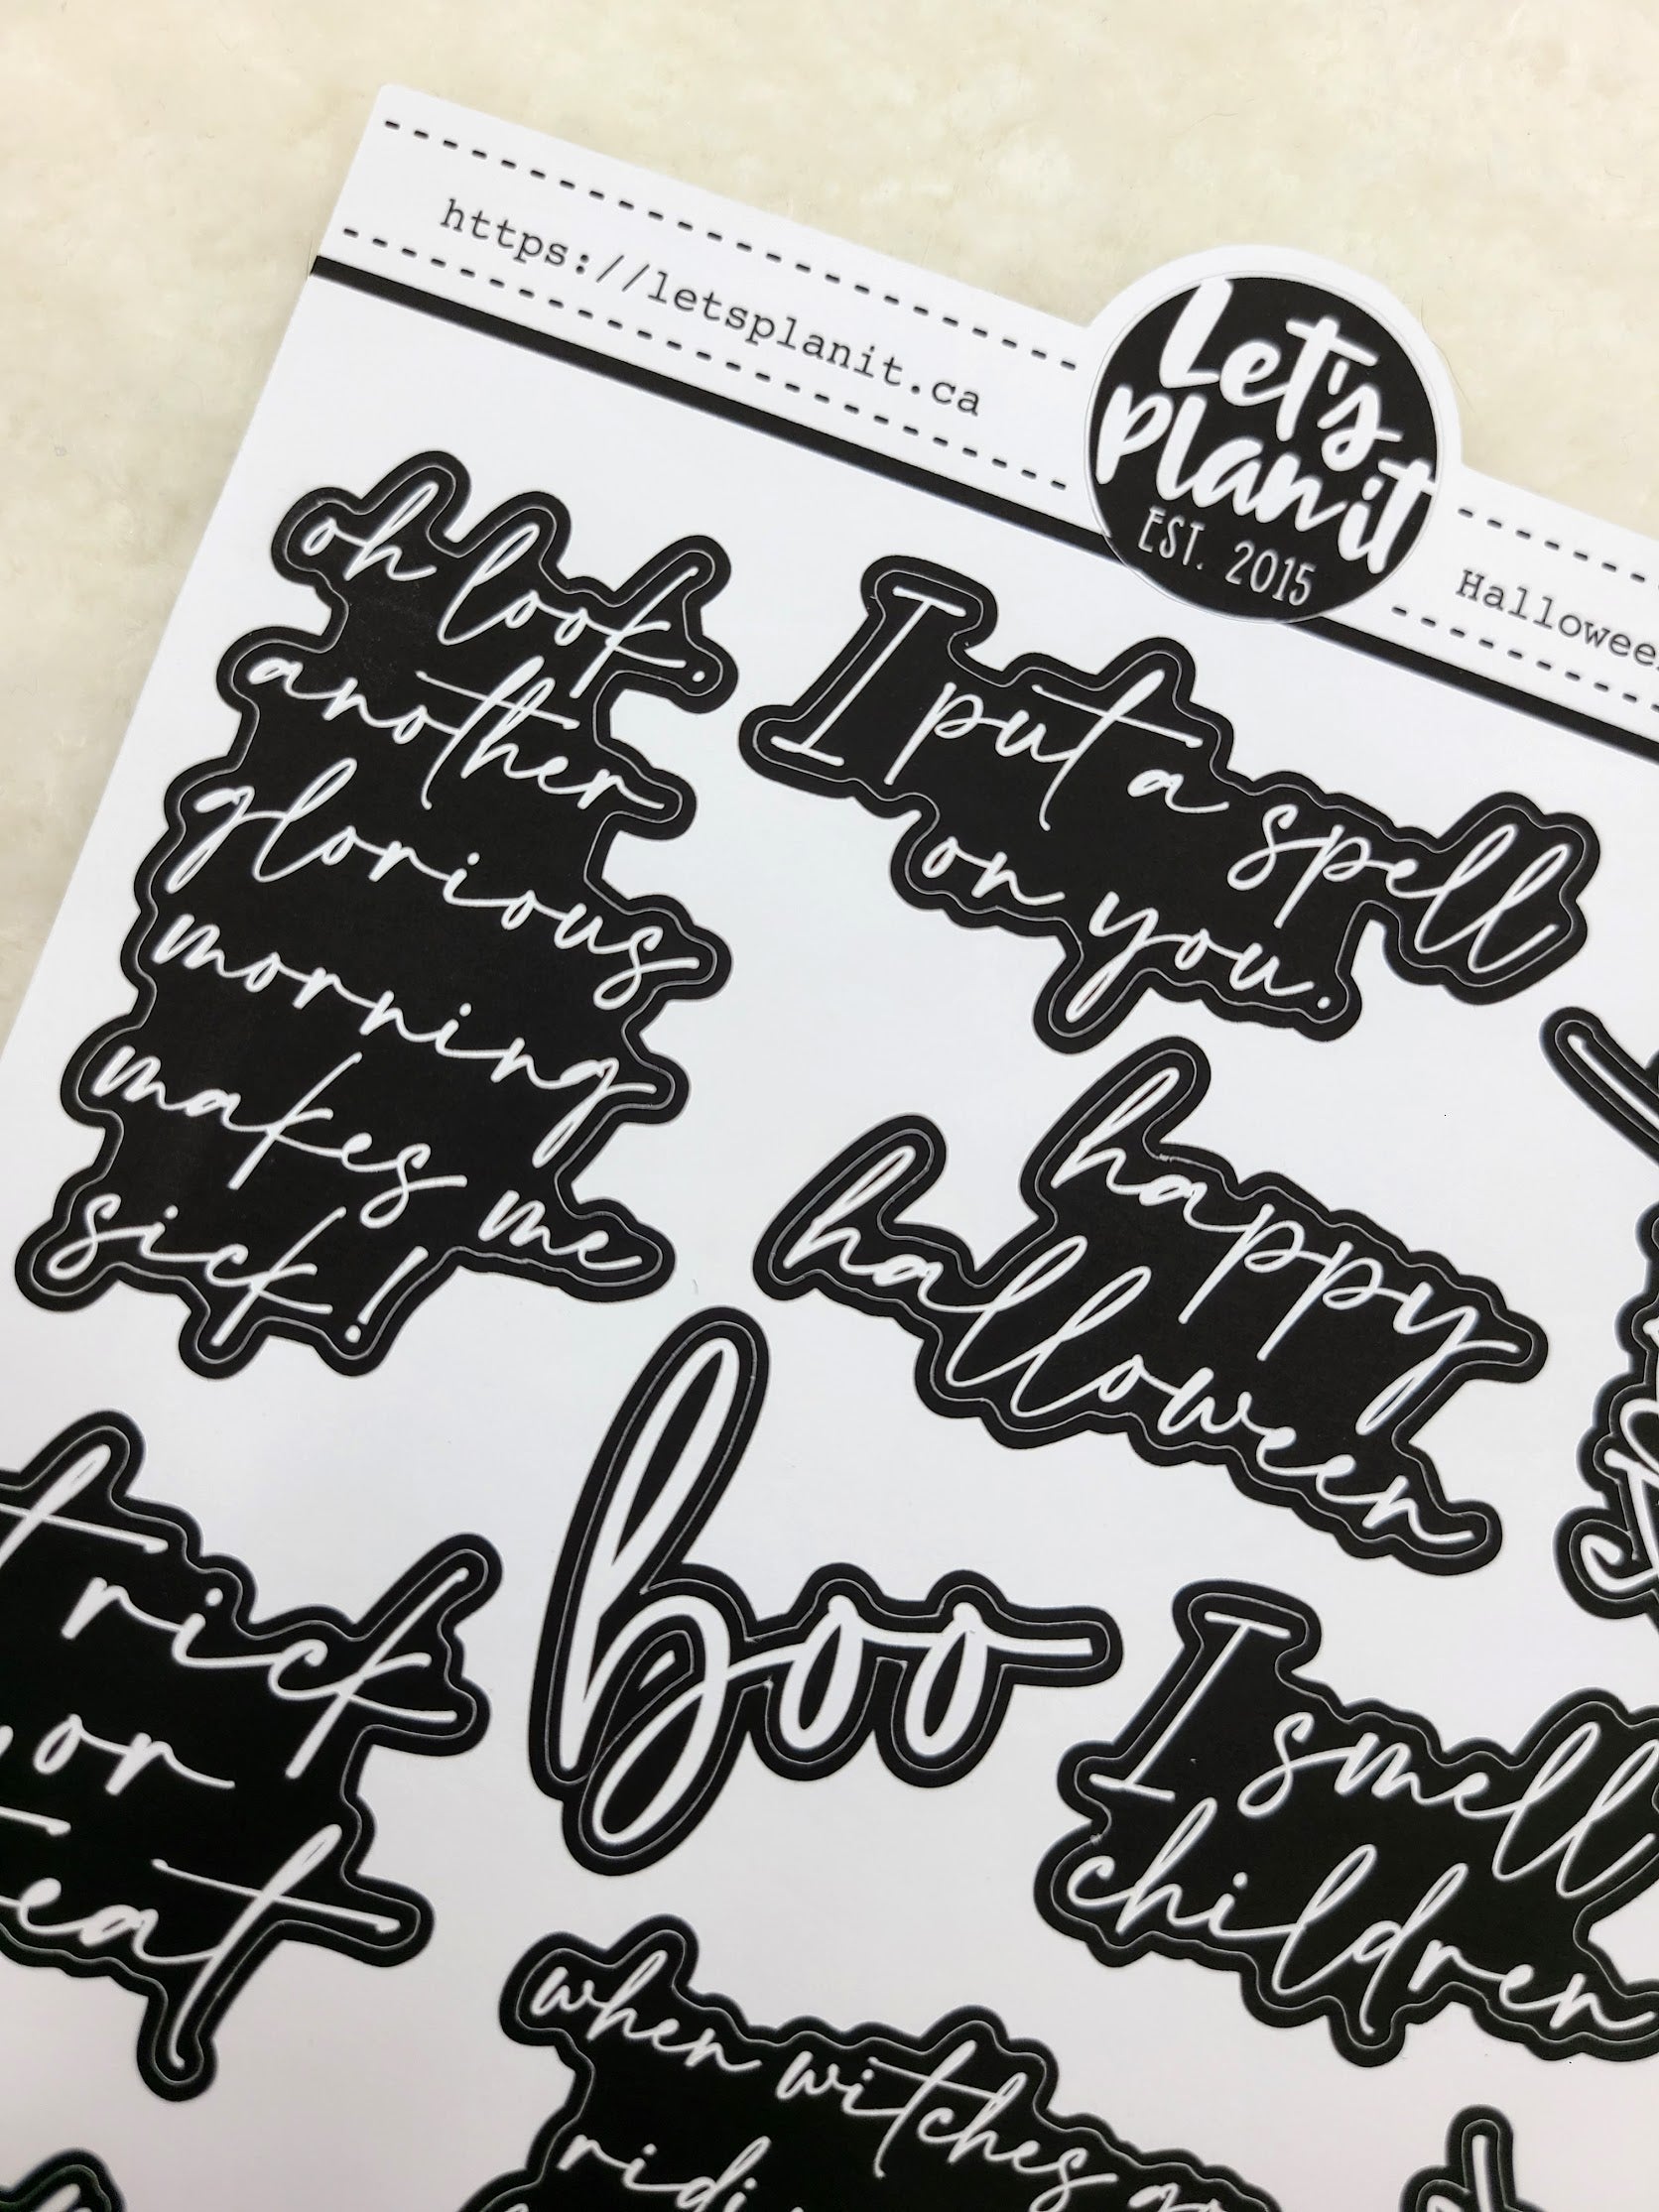 https://letsplanit.ca
Let's
plan it
EST. 2015
oh look.
another
glorious
morning
makes me
sick!
I put a spell
on you.
happy
halloween
boo
trick
or
I smell
children
when witches